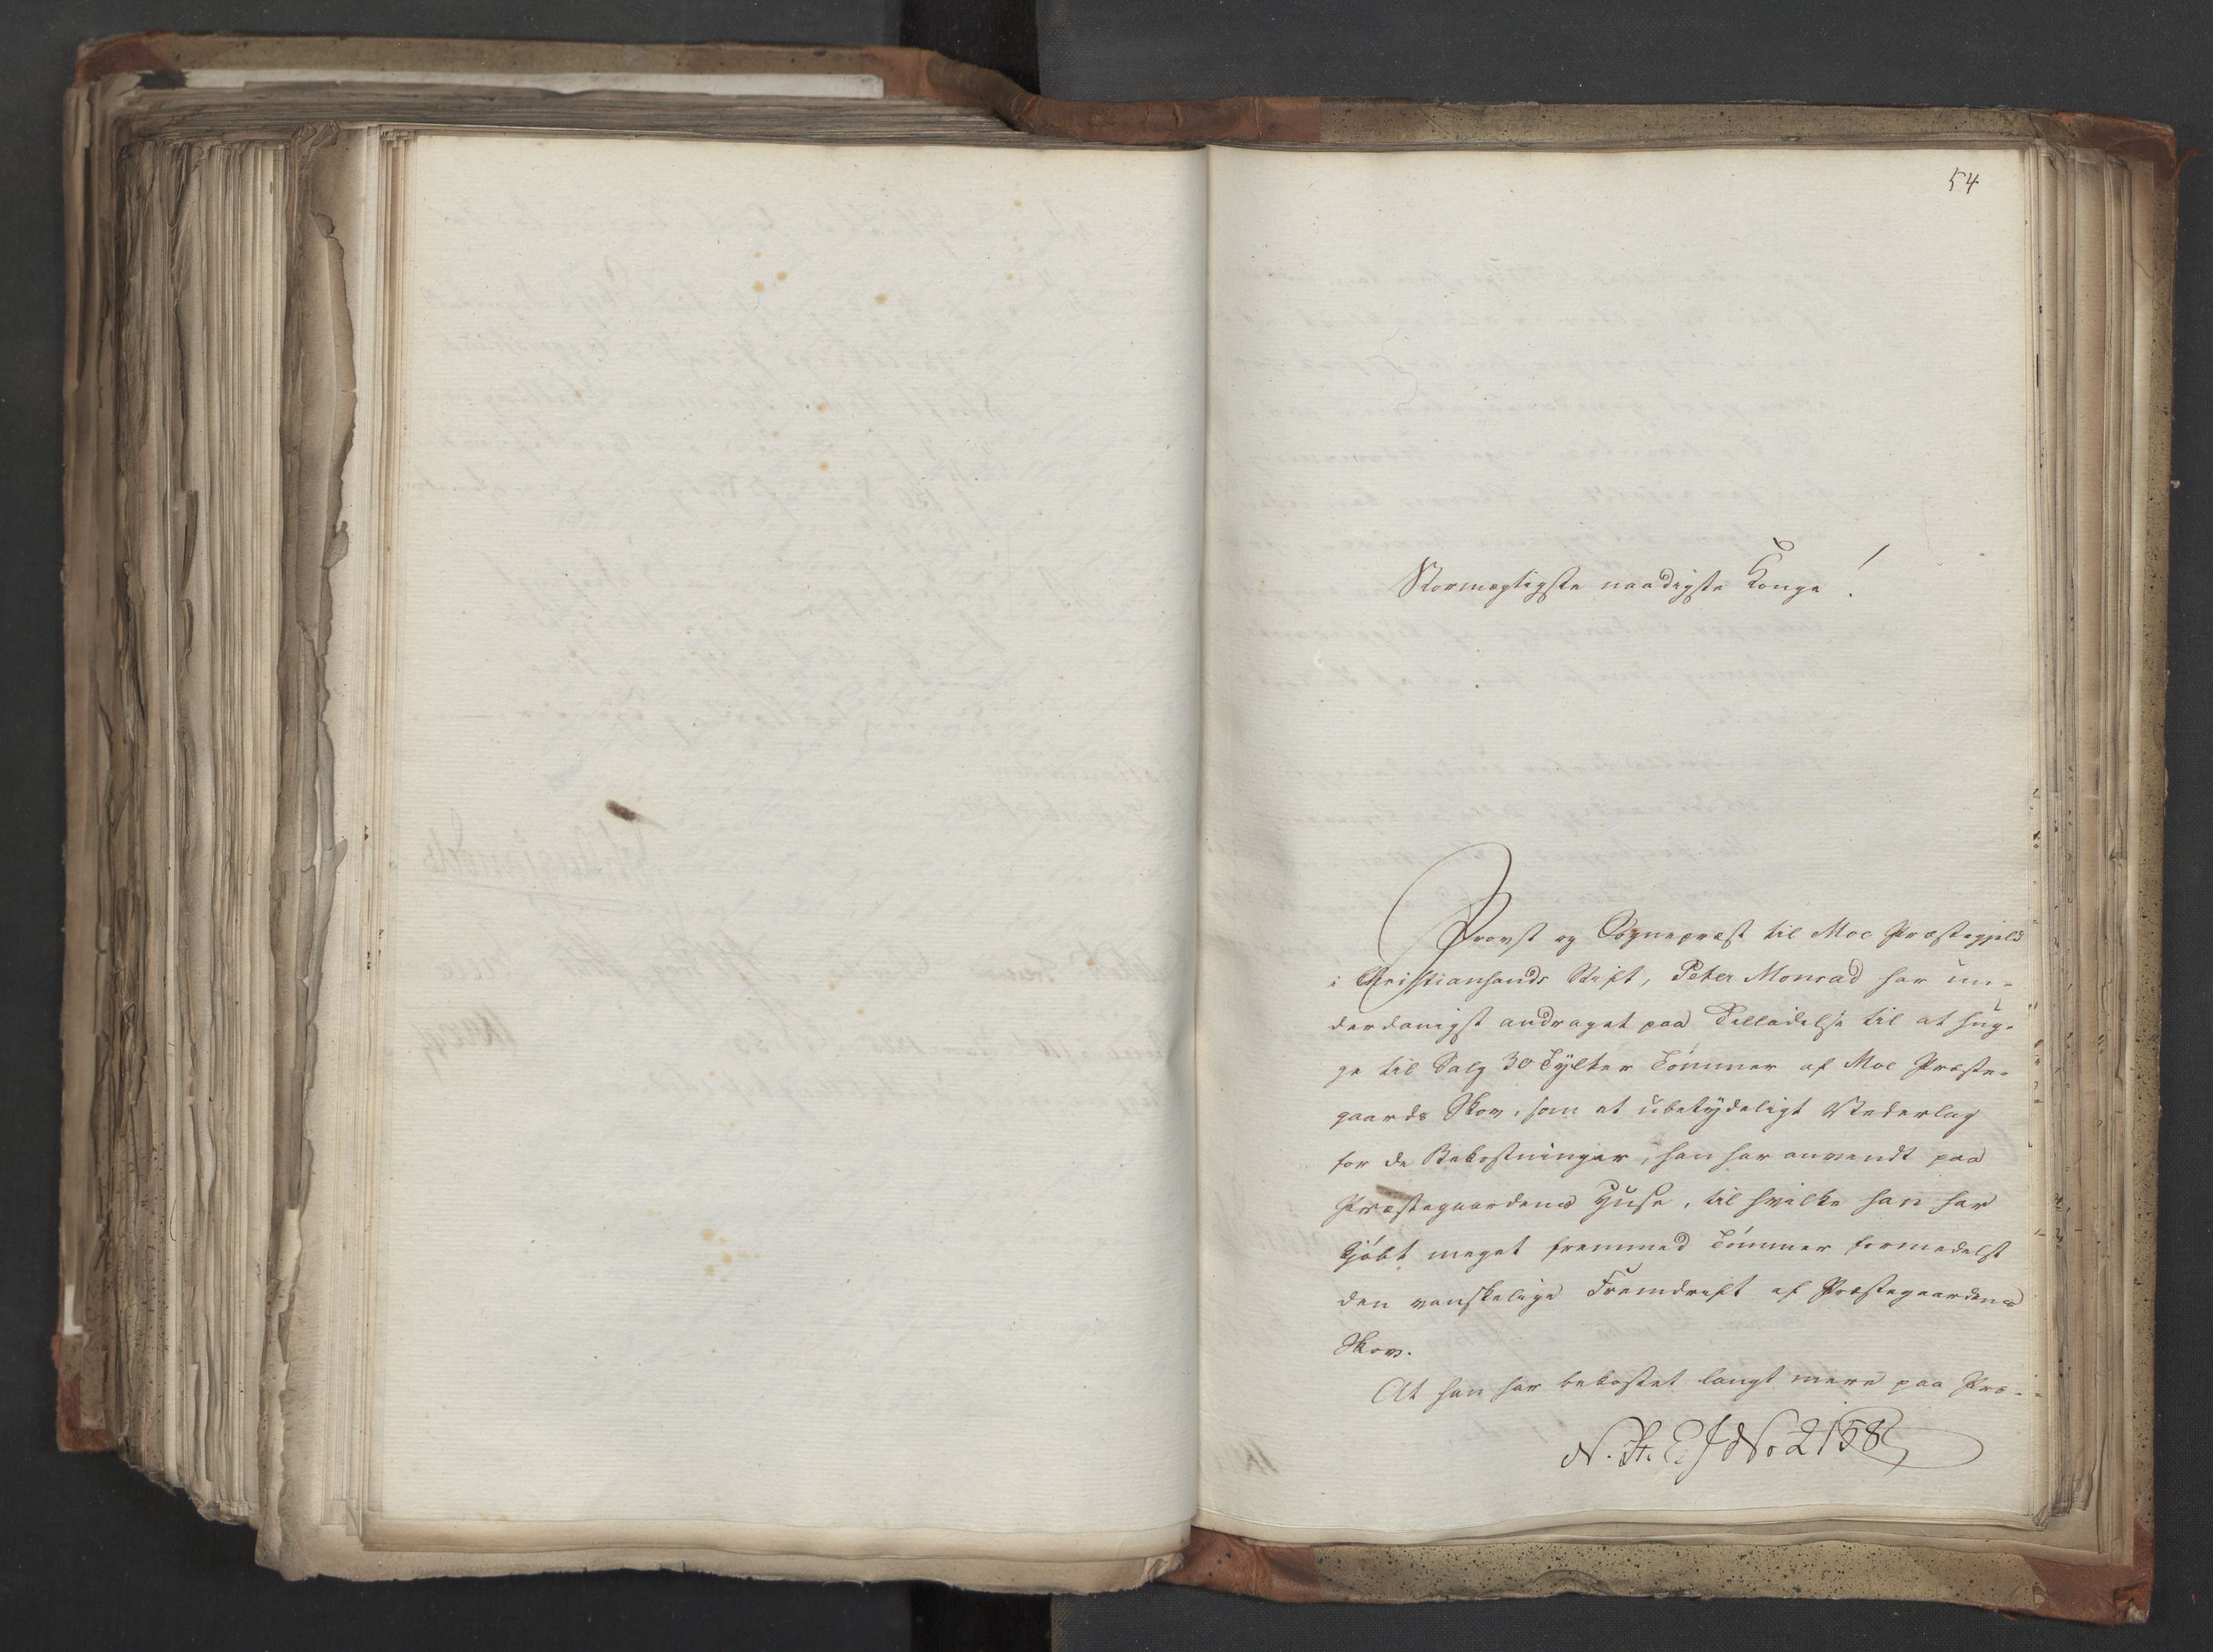 54
Stormægtigste naadigste Konge!
Provst og Sognepræst til Moe Præstegjeld
i Christiansands Stift, Peter Monrad har un-
derdanigst andraget paa Tilladelse til at hug-
ge til Salg 30 Tylter Tømmer af Moe Præste-
gaards Skov, som et ubetydeligt Vederlag
for de Bekostninger, han har anvendt paa
Præstegaardens Huse, til hvilke han har
kjøbt meget fremmed Tømmer formedelst
den vanskelige Fremdrift af Præstegaardens
Skov.
At han har bekostet langt mere paa Præ-
N. 2158